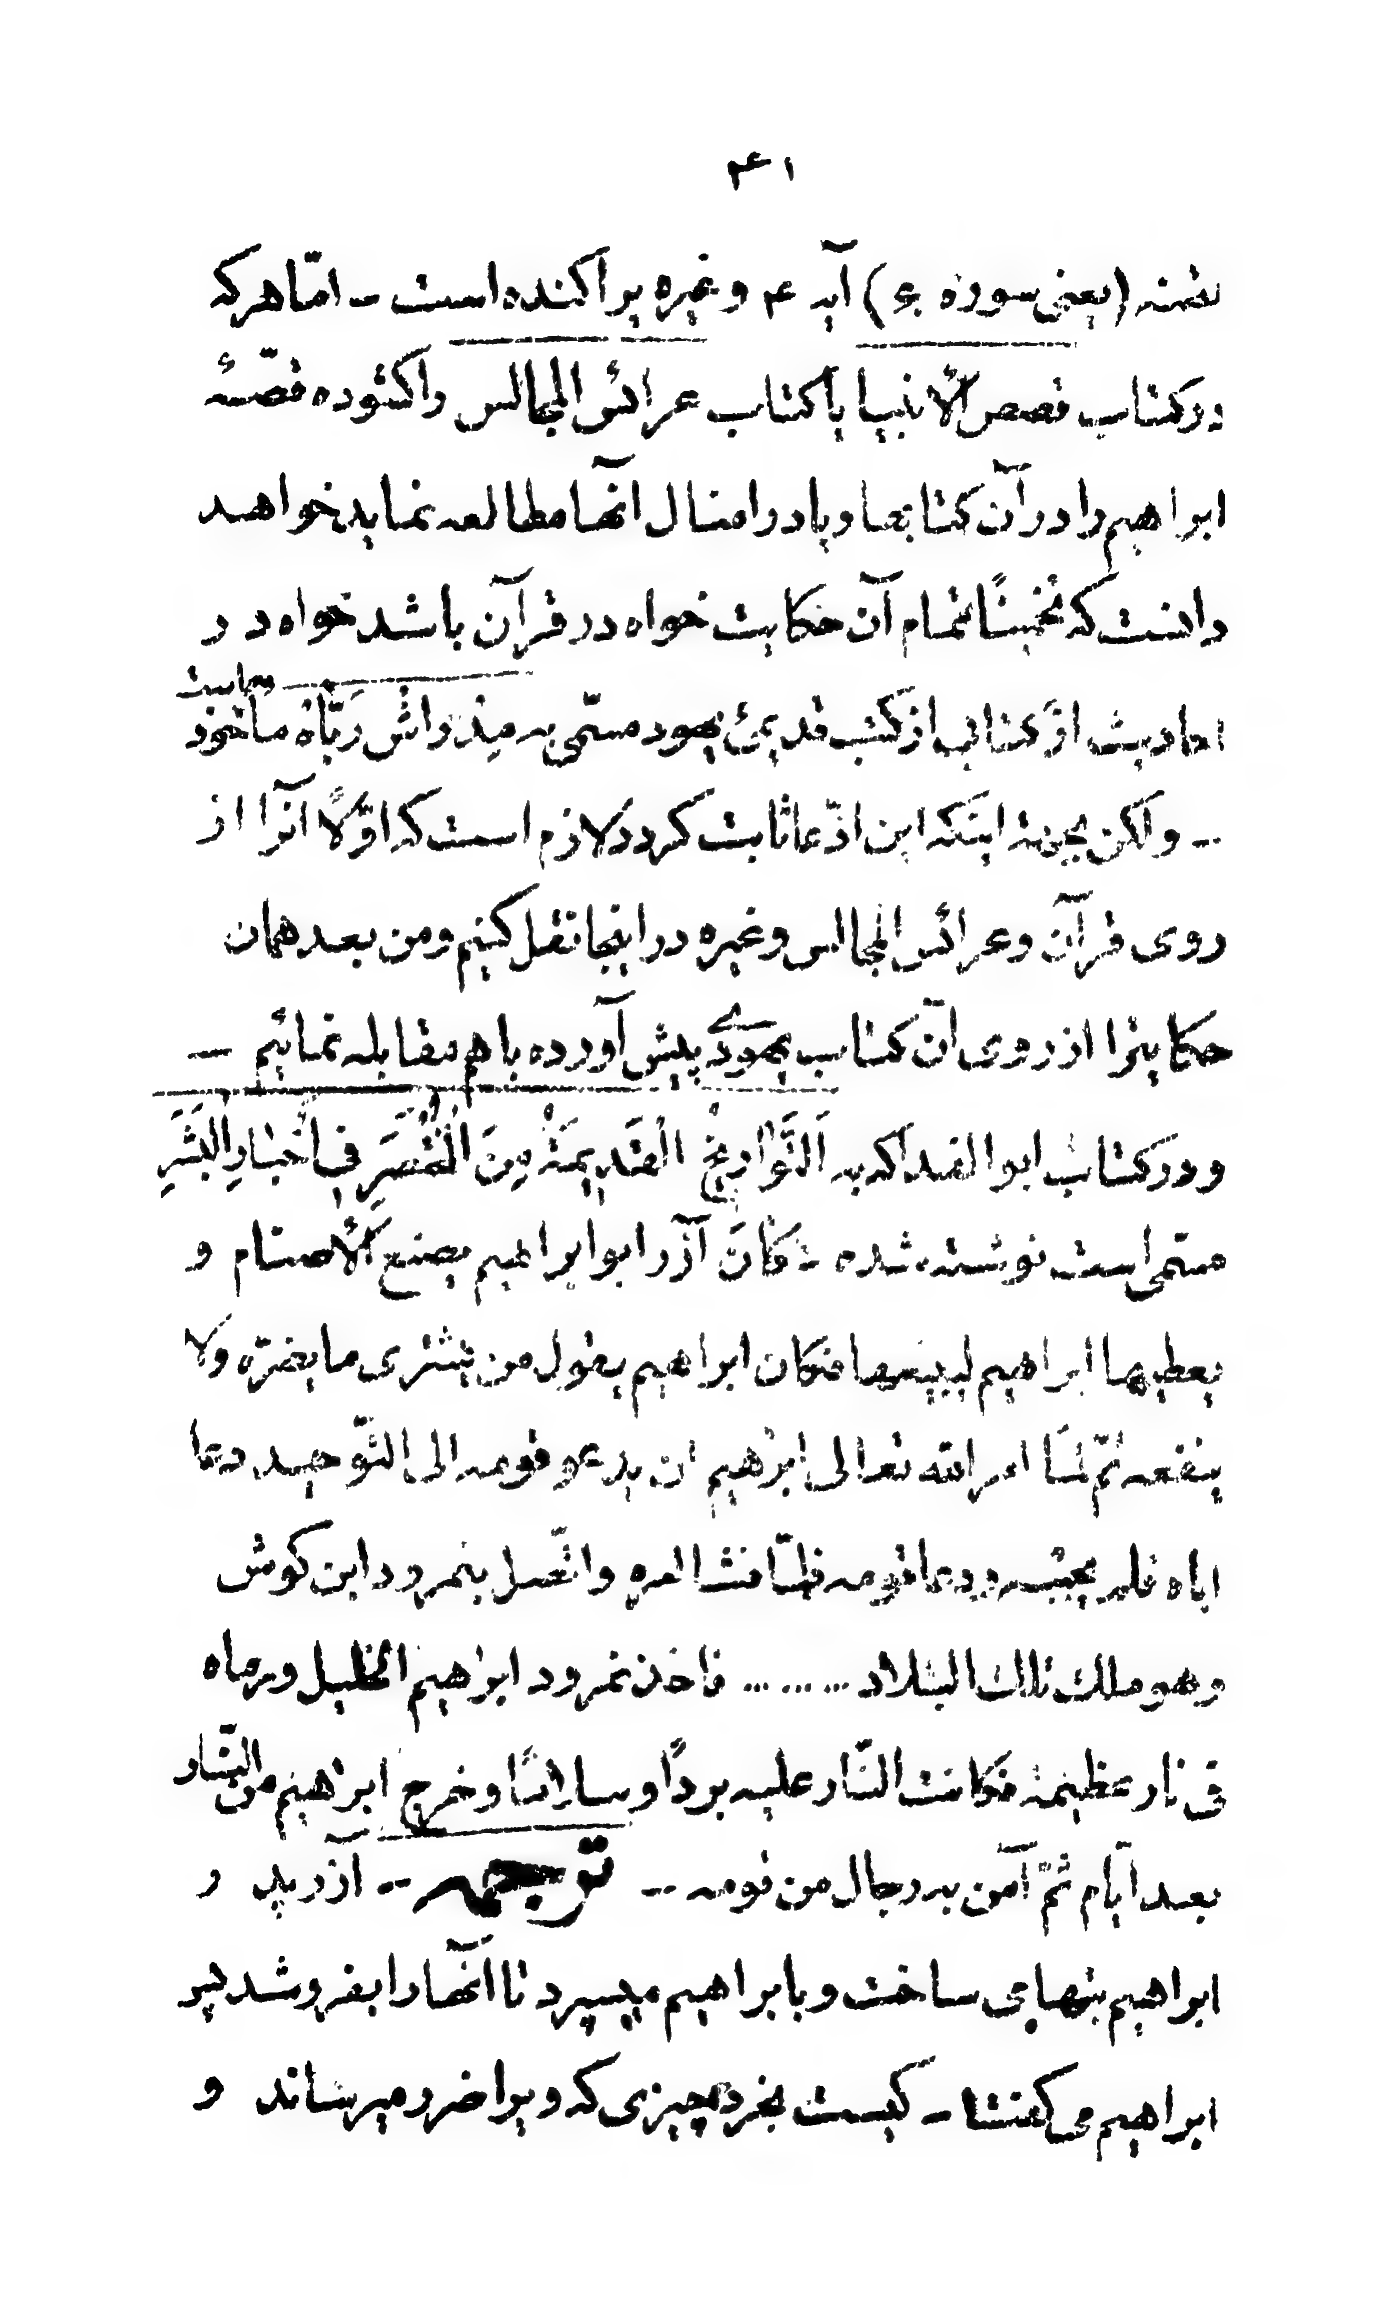 ۴۱
(یعنی سوره ۶۰) آیه ۴ وغیره پراکنده است - امّا هرکه
درکتاب قصص الأنبیا یا کتاب عرائس المجالس را کشوده قصّهٔ
ابراهیم را در آن کتابها و یا در امثال آنها مطالعه نماید خواهد
دانست که نخمیناً تمام آن حکایت خواه در قرآن باشد خواه در
احادیث از کتابی از کتب قدیمئ یهود مسمّی به میذراش ربّاه مأخوذ میباشد
-- ولکن بجهة اینکه این ادّعا ثابت گردد لازم است که اوّلاً آنرا از
روی قرآن و عرائس المجالس وغیره در اینجا نقل کنیم و من بعد همان
حکایترا از روی آن کتاب یهودے پیش آورده باهم مقابله نمائیم -
و در کتاب ابو الفدا که به اَلتَّوَارِیْخِ القَدِیمَةْ مِنَ الْمُخْتَصَرِ فِی أَخْبَارِ الْبَشَرِ
مسمّی است نوشته شده - کَانَ آزَر ابو ابراهیم یصنع الأصنام و
یعطیها ابراهیم لیبیعها فکان ابراهیم یقول من یشتری ما یضرّه ولا
ینفعه ثمّ لمّا امر الله تعالی ابرهیم ان یدعو قومه الی التّوحید دعا
اباه فلم یجبه و دعا قومه فلمّا فشا امره واتّصل بنمرود ابن کوش
وهو ملک تلک البلاد ... ... ... فاخذ نمرود ابراهیم الخلیل ورماه
فی نار عظیمة فکانت النّار علیه برداً وسلاماً وخرج ابراهیم من النّار
بعد ایّام ثمّ آمن به رجال من قومه -- ترجمه -- آزر پدر
ابراهیم بتها می ساخت و بابراهیم میسپرد تا آنها را بفروشد پس
ابراهیم می گفت - کیست بخرد چیزی که ویرا ضرر میرساند و